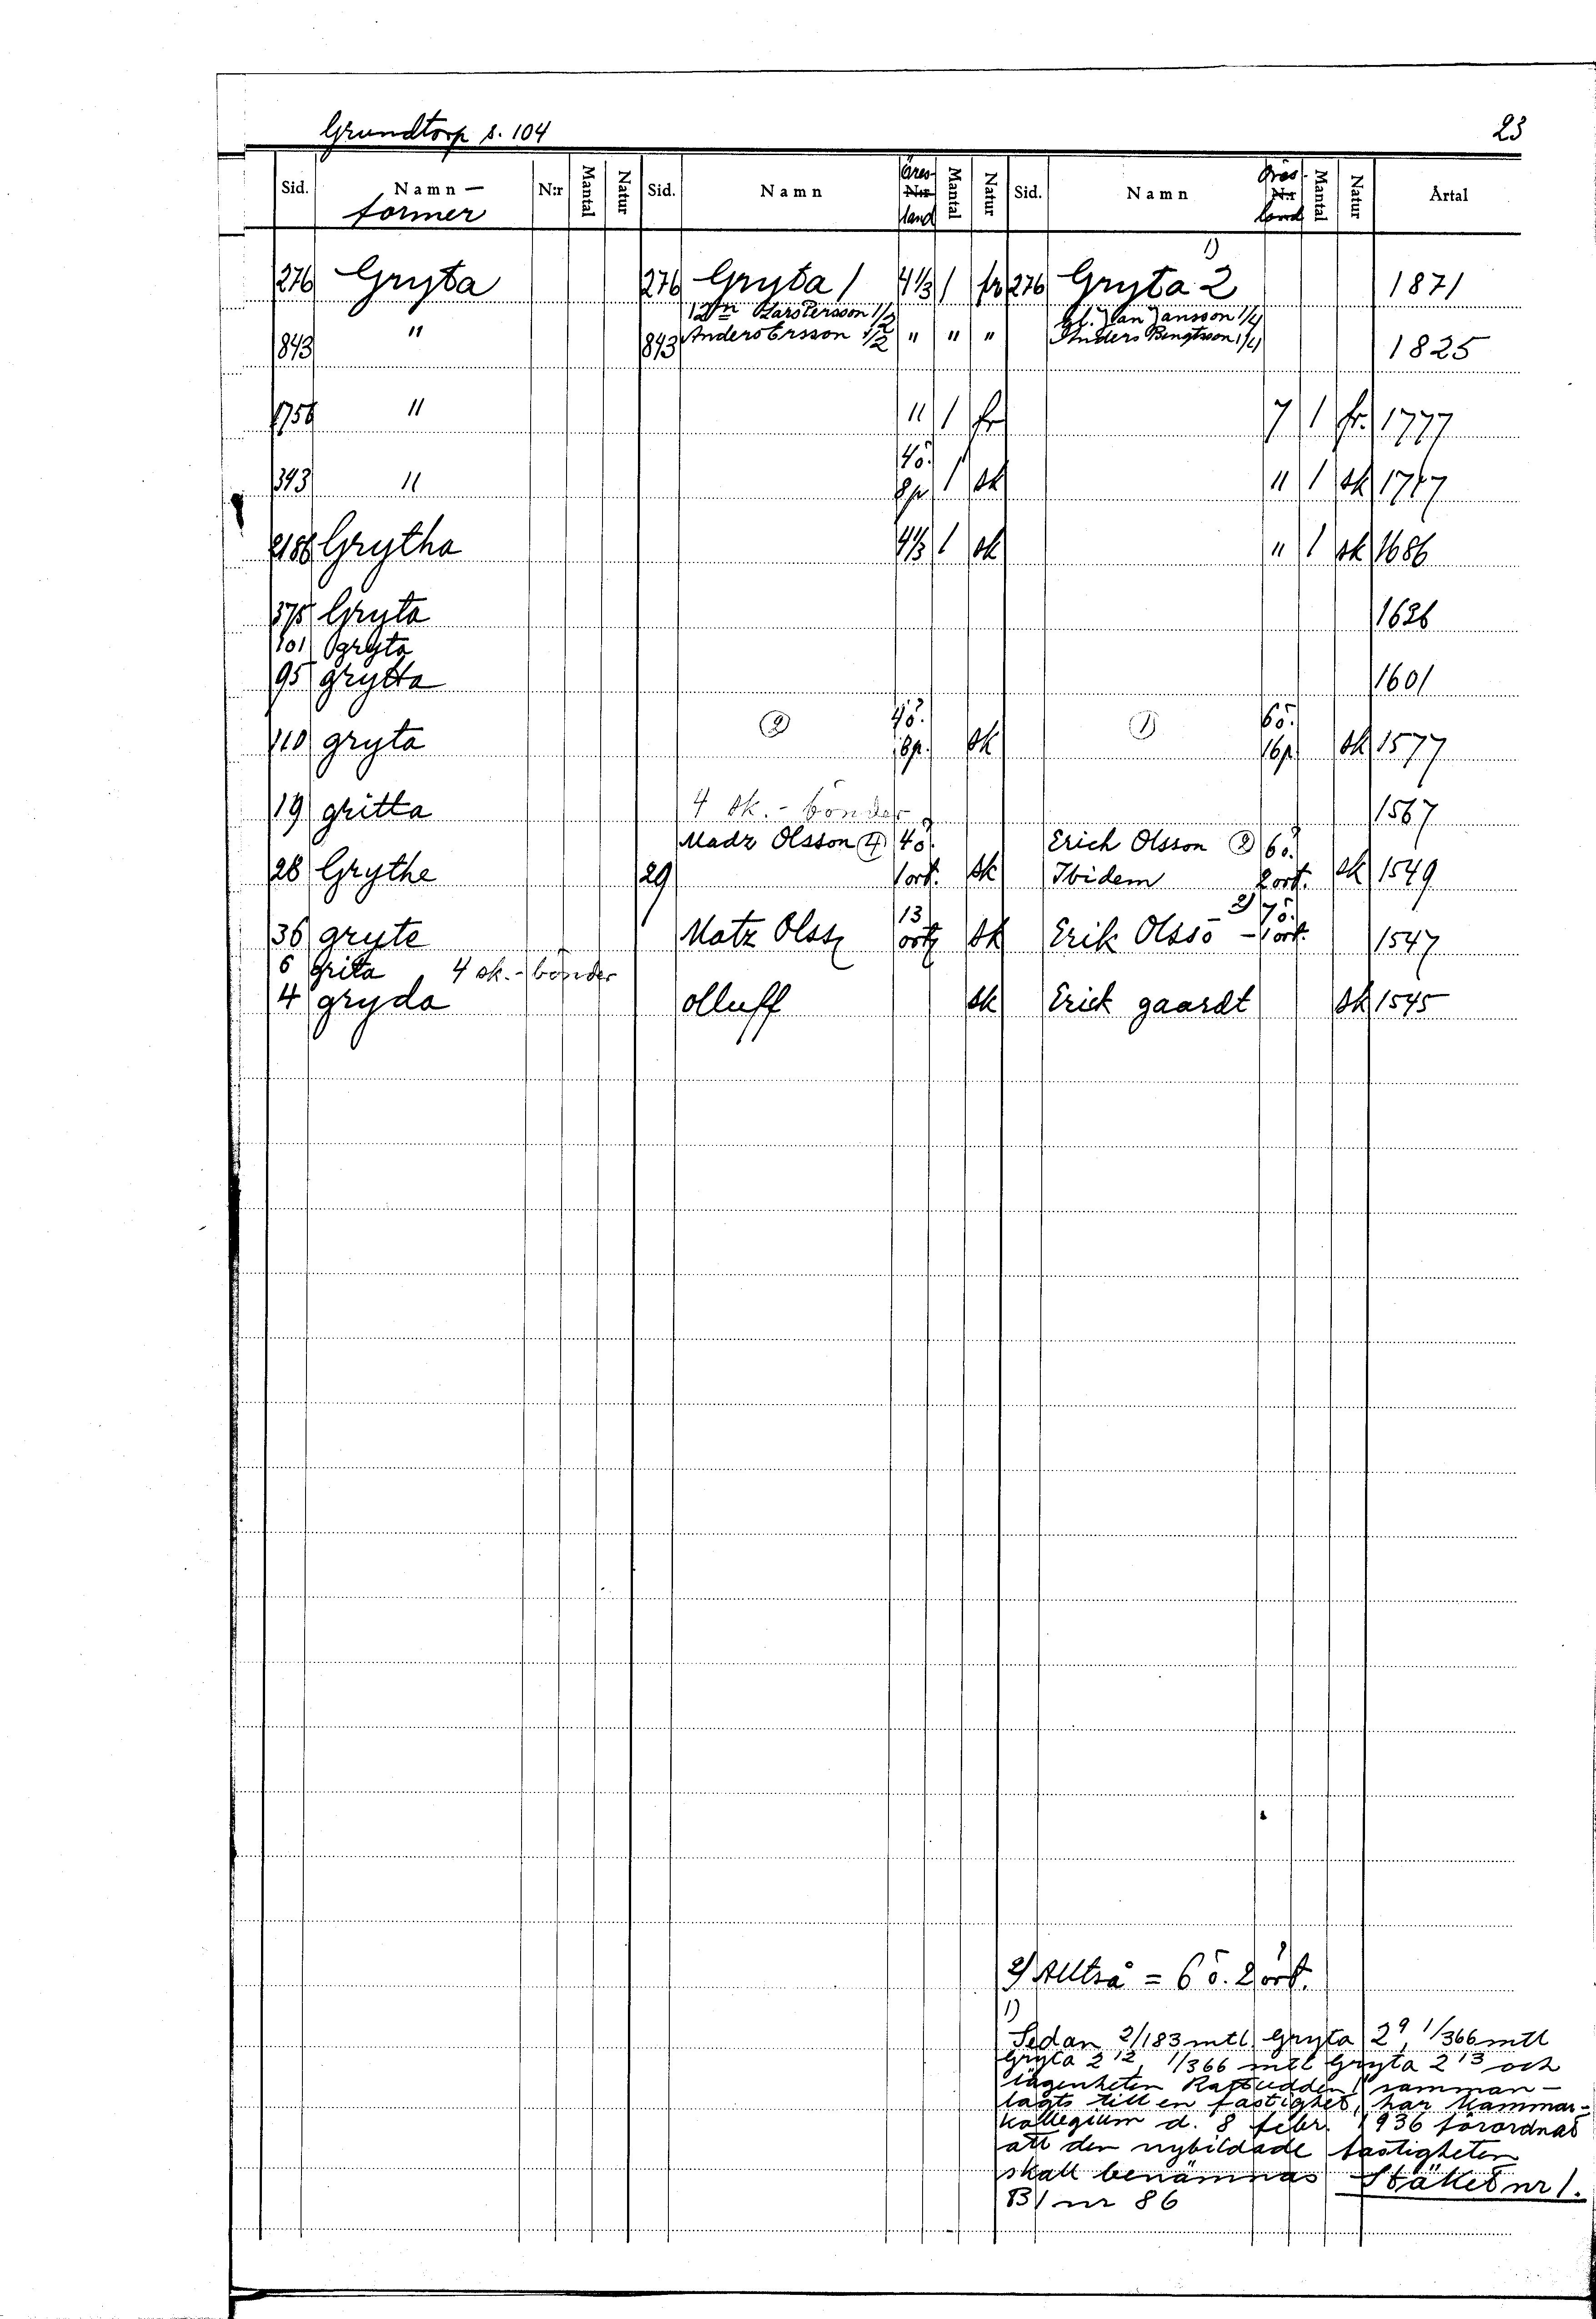 Grundtorp s. 104 23
Sid. Namn- N:r Mantal Natur Sid. Namn Öres- N:r land Mantal Natur Sid. Namn Öres- N:r land Mantal Natur Årtal
former
1)
276 Gryta 276 Gryta 1 4 1/3 1 fr 276 Gryta 2 1871
Lars Persson 1/2 Jan Jansson 1/4
843 " 843 Anders Ersson 1/2 " " " Anders Bengtsson 1/4 1825
1756 " " 1 fr 7 1 fr. 1777
4ö.
343 " 8p 1 sk " 1 sk 1717
2186 Grytha 4 1/3 1 sk " 1 sk 1686
375 Gryta 1626
101 gryta
95 grytta 1601
② 4ö. ① 6ö.
110 gryta 8p. sk 16p. sk 1577
19 gritta 4 sk.-bönder 1567
Madz Olsson ④ 4ö. Erich Olsson ② 6ö.
28 Grythe 29 1 ort. sk Ibidem 2 ort. sk 1549
13 2) 7ö.
36 gryte Matz Olss ortz sk Erik Olsso - 1 ort. 1547
6 grita 4 sk.-bönder
4 gryda olluff sk Erick gaardt sk 1545
2) Alltså = 6 ö. 2 ört.
1)
Sedan 2/183 mtl Gryta 2⁹, 1/366 mtl
Gryta 2¹², 1/366 mtl Gryta 2¹³ och
lägenheten Raftudden 1 samman-
lagts till en fastighet, har Kammar-
kollegium d. 8 febr. 1936 förordnat
att den nybildade fastigheten
skall benämnas Stäket nr 1.
B1 nr 86